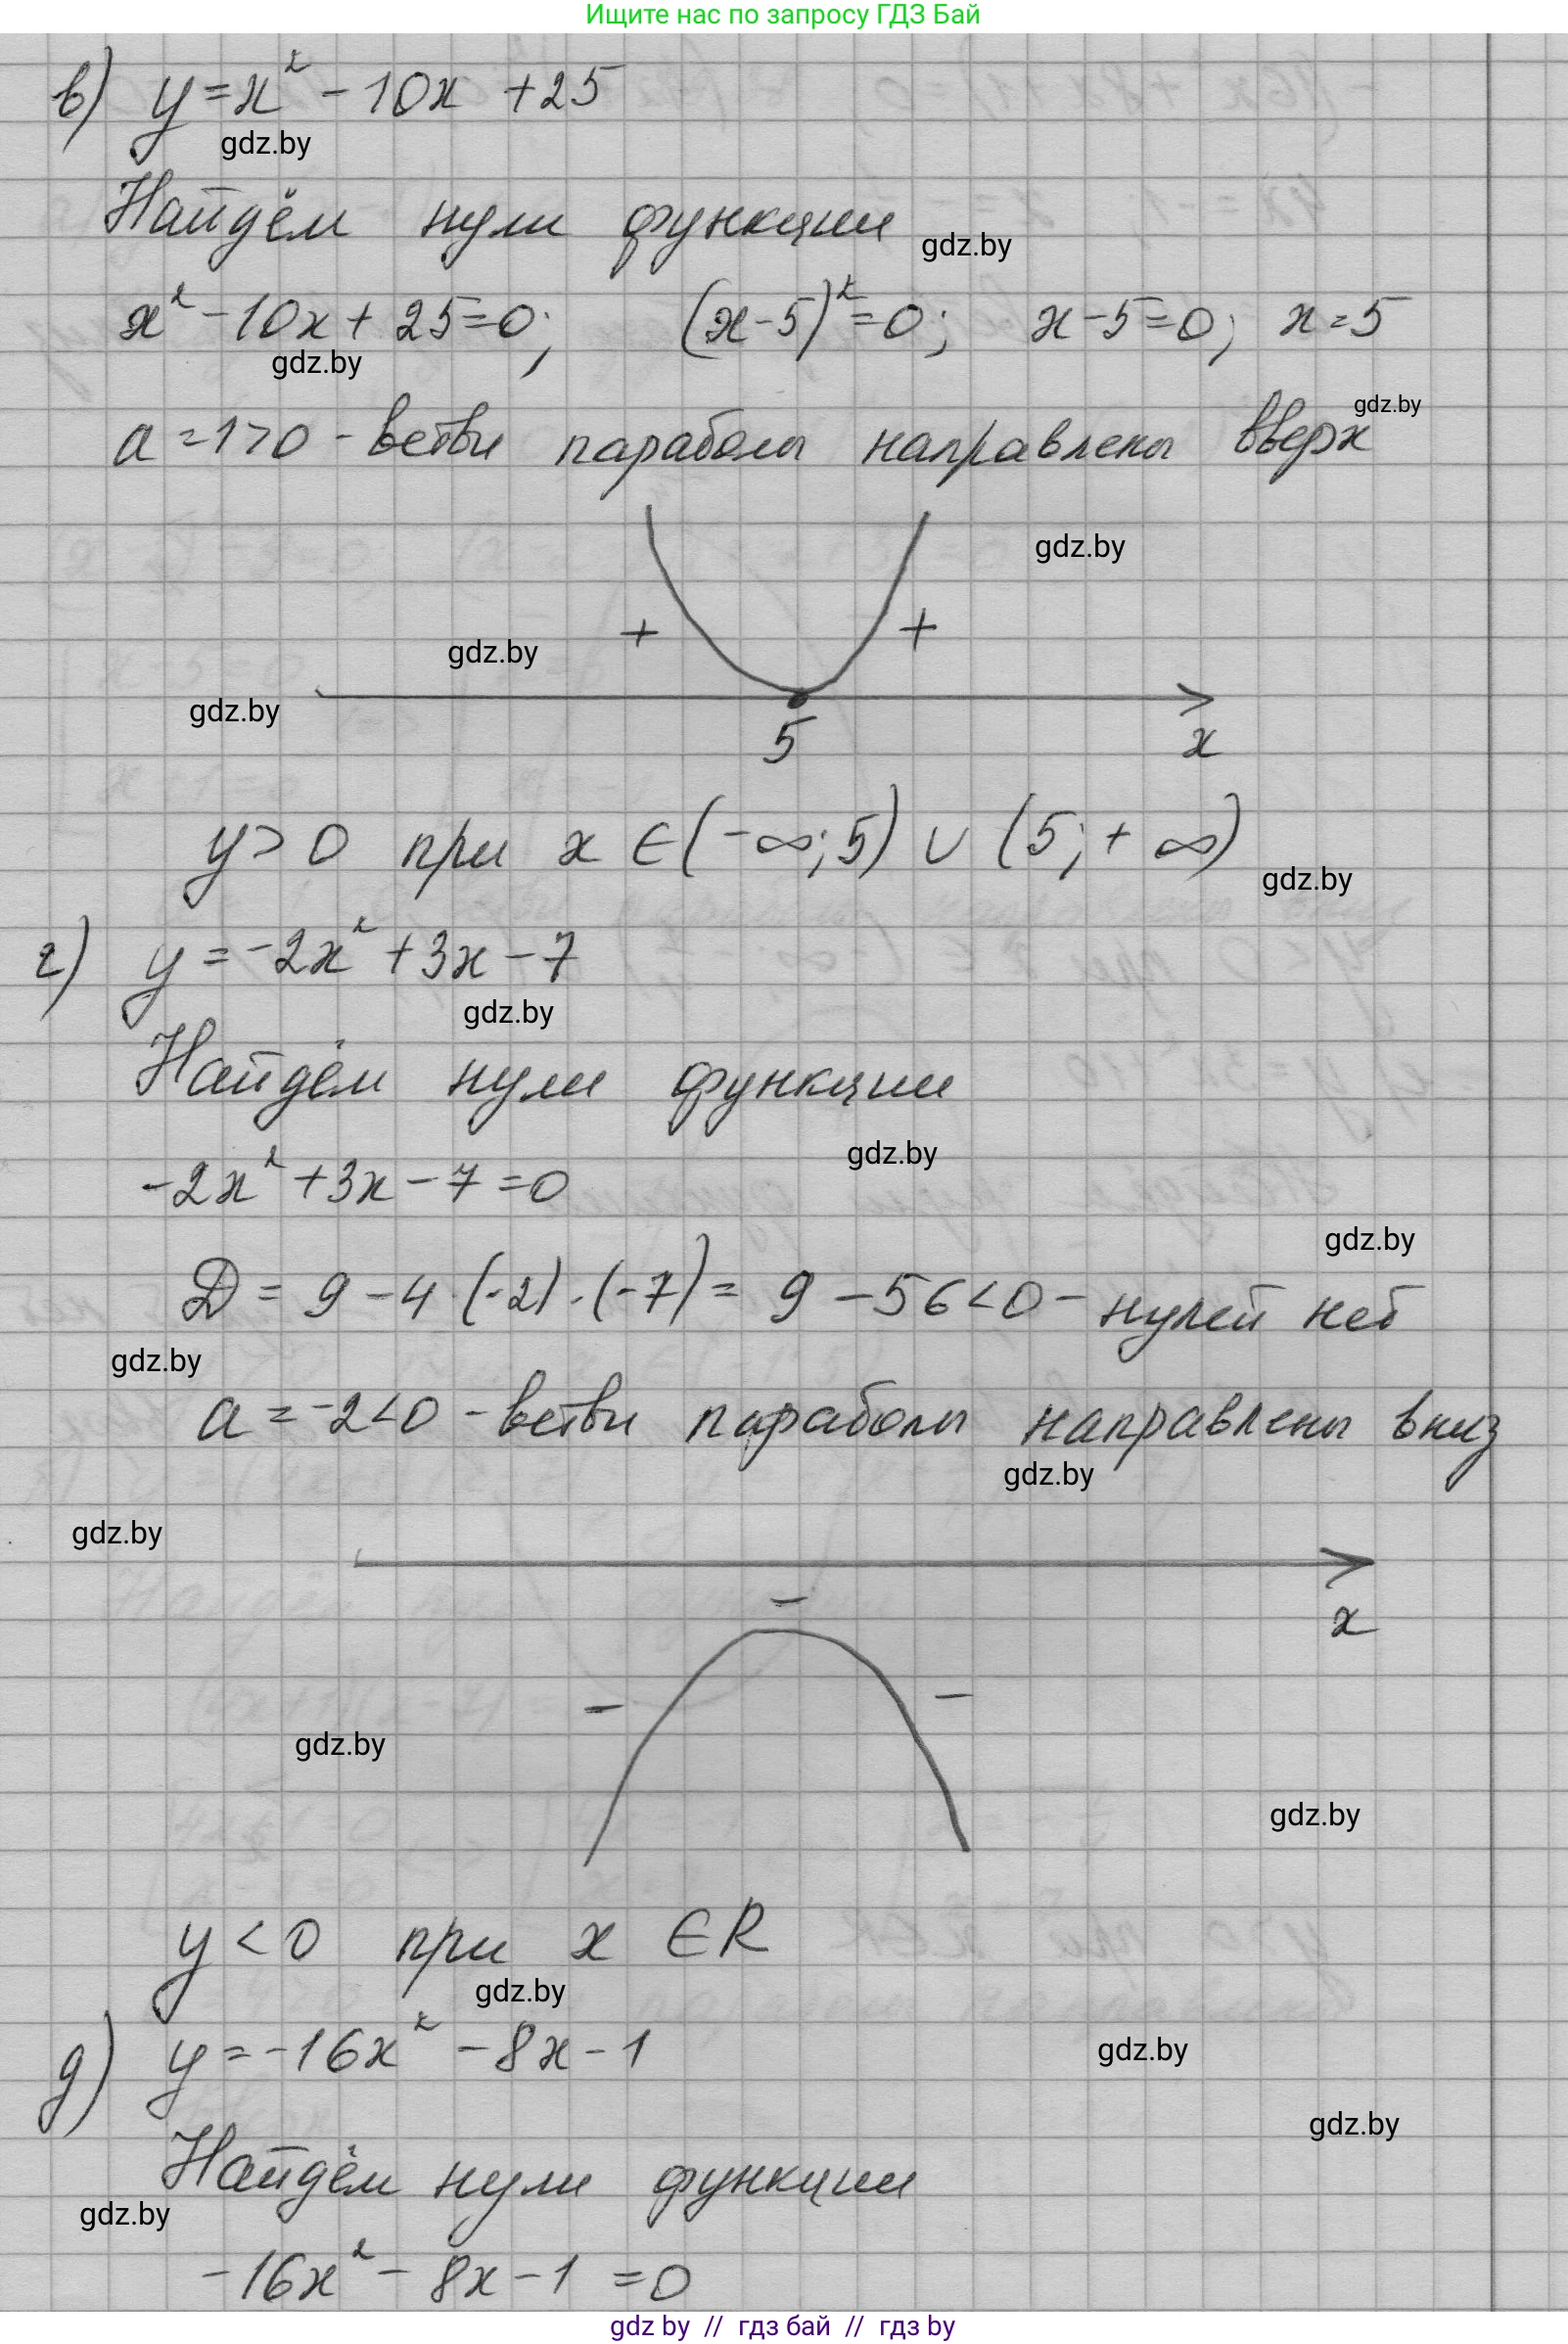 Ищите нас по запросу ГДЗ Бай
в) y=x² -10x +25
gdz.by
Найдём нули функции
gdz.by
x²-10x+25=0; (x-5)²=0; x-5=0; x=5
gdz.by
a=1>0 - ветви параболы направлены вверх
gdz.by
gdz.by
+ +
gdz.by
gdz.by
5 x
y>0 при x ∈(-∞;5) ∪ (5;+∞)
gdz.by
г) y=-2x²+3x-7
gdz.by
Найдём нули функции
gdz.by
-2x²+3x-7=0
gdz.by
D= 9-4·(-2)·(-7)= 9-56<0- нулей нет
gdz.by
a=-2<0 - ветви параболы направлены вниз
gdz.by
gdz.by
x
-
- -
gdz.by
gdz.by
y<0 при x ∈R
gdz.by
д) y=-16x²-8x-1
gdz.by
gdz.by
Найдём нули функции
gdz.by
-16x²-8x-1=0
gdz.by // гдз бай // гдз by